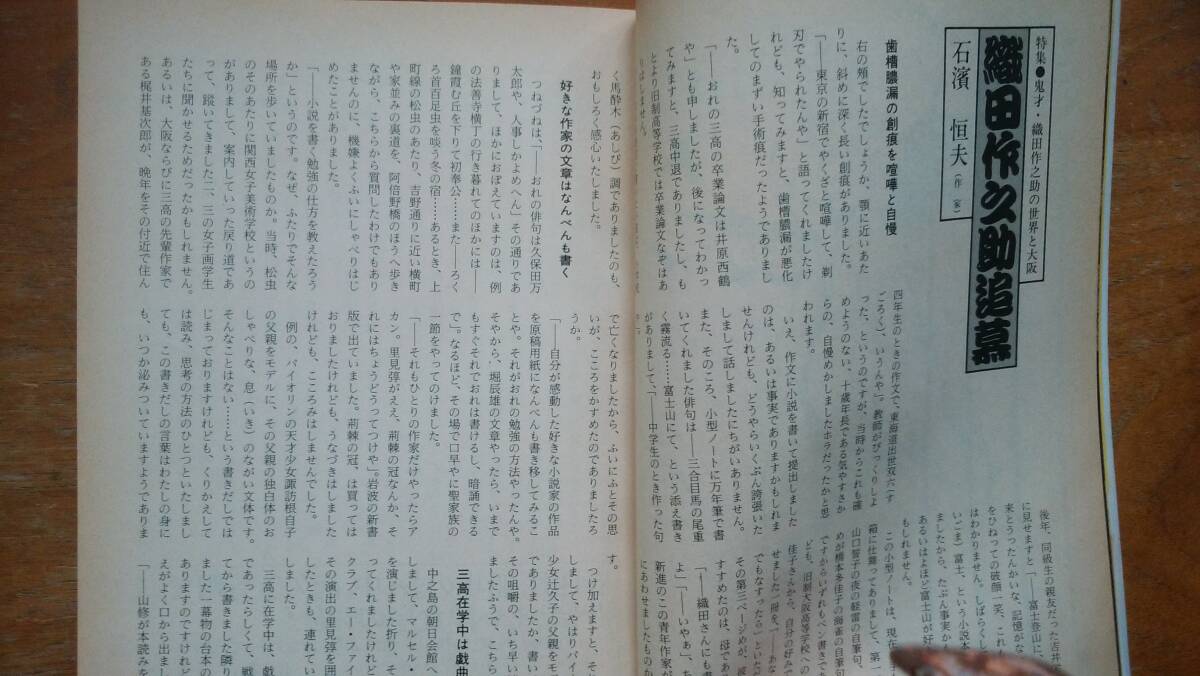 特集●鬼才・織田作之助の世界と大阪
織田作之助追慕
石濱恒夫(作家)
歯槽膿漏の創痕を喧嘩と自慢
右の頰でしたでしょうか、顎に近いあた
りに、斜めに深く長い創痕がありました。
「――東京の新宿でやくざと喧嘩して、剃
刃でやられたんや」と語ってくれましたけ
れども、知ってみますと、歯槽膿漏が悪化
してのまずい手術痕だったようでありまし
た。
「――おれの三高の卒業論文は井原西鶴
や」とも申しましたが、後になってわかっ
てみますと、三高中退でありましたし、も
とより旧制高等学校では卒業論文なぞはあ
りはしません。
四年生のときの作文で、東海道出世双六(す
ごろく)、いうんや」。教師がびっくりしよ
った、というのですが、当時からこれも確
めようのない、十歳年長である気やすさか
らの、自慢めかしましたホラだったかと思
われます。
いえ、作文に小説を書いて提出しました
のは、あるいは事実でありますかもしれま
せんけれども、どうやらいくぶん誇張いた
しまして話しましたにちがいありません。
また、そのころ、小型ノートに万年筆で書
いてくれました俳句は――三合目馬の尾重
く霧流る……富士山にて、という添え書き
がありまして、「――中学生のとき作った句
後年、同級生の親友だった吉井
に見せますと、「――富士登山に、
来とうつたんかいな、記憶がな
をひねっての破顔一笑、これも
はわかりません。しばらくし
いご)富士、という小説本
ましたから、たぶん事実か
あるいはよほど富士山が好
もしれません。
この小型ノートは、現在
箱に仕舞ってありまして、第一
山口誓子の夜の軽雷の自筆句、
めが橋本多佳子の海雀の自筆句
ですからいずれもペン書きであ
ども、旧制大阪高等学校への
佳子さんから、自分の好みで
せました一冊を、「――あな
でもなすったら」といわれ
その第三ページめが、彼
すすめたのは、母であり
「――織田さんにも書
よ」「――いやぁ」、ち
新進のこの青年作家が
にあわせましたものか
く馬酔木(あしび)調でありましたのも、
おもしろく感心いたしました。
好きな作家の文章はなんべんも書く
つねづねは、「――おれの俳句は久保田万
太郎や、人事しかよめへん」その通りであ
りまして、ほかにおぼえていますのは、例
の法善寺横丁の行き暮れてのほかには――
鐘霞む丘を下りて初奉公……また――ろく
ろ首百足虫を啖う冬の宿……あるとき、上
町線の松虫のあたり、吉野通りに近い横町
や家並みの裏道を、阿倍野橋のほうへ歩き
ながら、こちらから質問したわけでもあり
ませんのに、機嫌よくふいにしゃべりはじ
めたことがありました。
「――小説を書く勉強の仕方を教えたろう
か」というのです。なぜ、ふたりでそんな
場所を歩いていましたものか。当時、松虫
のそのあたりに関西女子美術学校というの
がありまして、案内していった戻り道であ
って、蹤いてきました二、三の女子画学生
たちに聞かせるためだったかもしれません。
あるいは、大阪ならびに三高の先輩作家で
ある梶井基次郎が、晩年をその付近で住ん
で亡くなりましたから、ふいにふとその思
いが、こころをかすめたのでありましたろ
うか。
「――自分が感動した好きな小説家の作品
を原稿用紙になんべんも書き移してみるこ
とや。それがおれの勉強の方法やったんや。
そやから、堀辰雄の文章やったら、いまで
もすぐそれでおれは書けるし、暗誦できる
で」。なるほど、その場で口早やに聖家族の
一節をやってのけました。
「――それもひとりの作家だけやったらア
カン。里見弴がええ、荊棘の冠なんか、そ
れにはちょうどうってつけや」。岩波の新書
版で出ていました。荊棘の冠、は買っては
おりましたけれども、うなづきはしました
けれども、こころみはしませんでした。
例の、バイオリンの天才少女諏訪根自子
の父親をモデルに、その父親の独白体のお
しゃべりな、息(いき)のながい文体です。
そんなことはない……という書きだしでは
じまっておりますけれども、くりかえして
は読み、思考の方法のひとつといたしまし
ても、この書きだしの言葉はわたしの身に
も、いつか泌みついていますようでありま
す。
つけ加えますと、そ
しまして、やはりバイ
少女辻久子の父親をモ
でありましたか、書い
その咀嚼、のいち早い
ましたふうで、こちら
三高在学中は戯曲
中之島の朝日会館へ
しまして、マルセル・
を演じました折り、そ
ってくれましたけれど
クラブ、エー・ファイ
その演出の里見弴を囲
したときも、連れてい
しました。
三高に在学中は、戯
であったらしくて、戦
てから書きました隣り
ました一幕物の台本の
ありますのですけれど
えがよく口から出ま
「――山修が本読みを